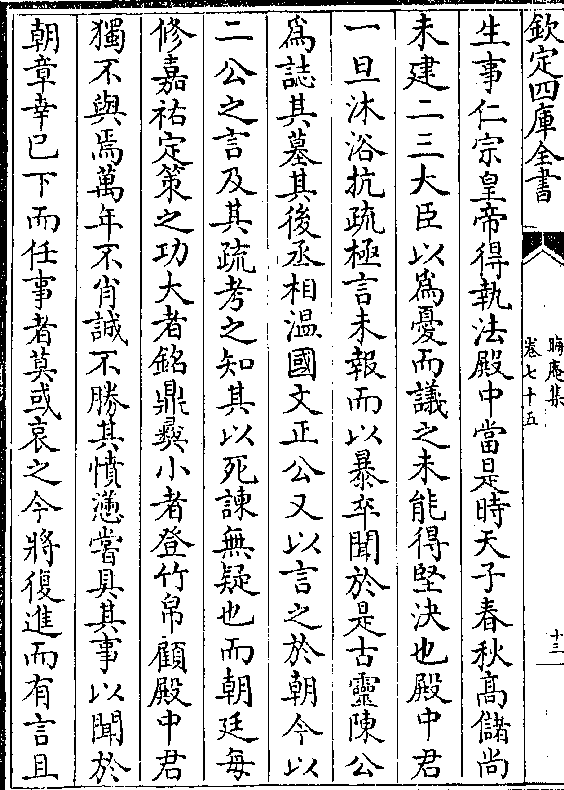 欽定四庫全書
晦庵集
卷七十五
十三
生事仁宗皇帝得執法殿中當是時天子春秋髙儲尚
未建二三大臣以爲憂而議之未能得堅決也殿中君
一旦沐浴抗疏極言未報而以暴卒聞於是古靈陳公
爲誌其墓其後丞相溫國文正公又以言之於朝今以
二公之言及其疏考之知其以死諫無疑也而朝廷每
修嘉祐定策之功大者銘鼎彞小者登竹帛顧殿中君
獨不與焉萬年不肖誠不勝其憤懣嘗具其事以聞於
朝章幸已下而任事者莫或哀之今將復進而有言且